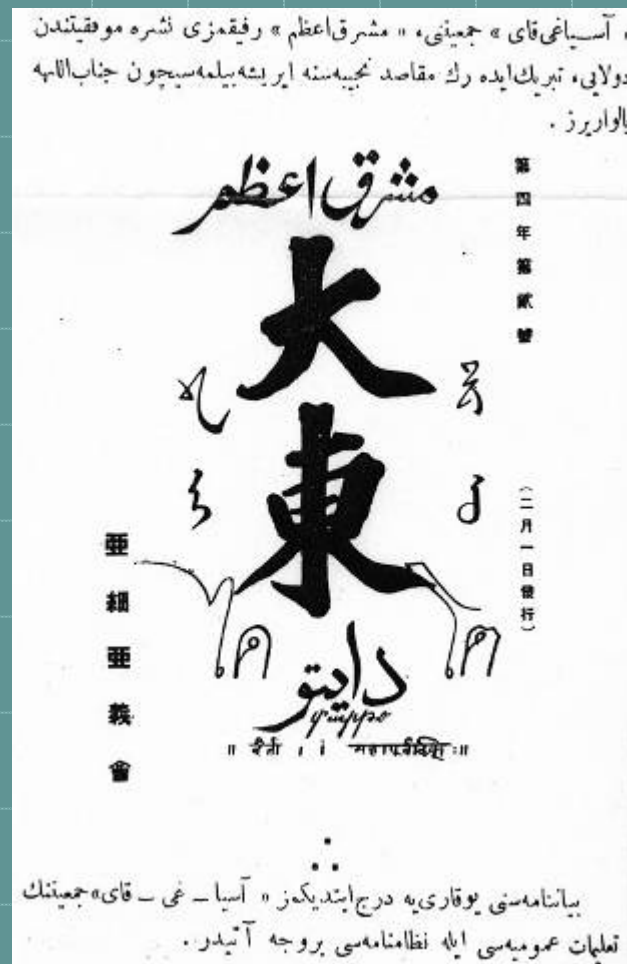 « آسیاغی‌قای » جمعیتنی، « مشرق‌اعظم » رفیقمزی نشره موفقیتندن
دولایی، تبریك‌ایده رك مقاصد نجیبه‌سنه ایریشه‌بیلمه‌سیچون جناب‌اللهه
یالواریرز .
مشرق اعظم
第四年第貳號
大東
（二月一日發行）
亞細亞義會
دایتو
بیاننامه‌سنی یوقاری‌یه درج‌ایتدیكمز « آسیا ـ غی ـ قای » جمعیتنك
تعلیمات عمومیه‌سی ایله نظامنامه‌سی بروجه آتیدر .